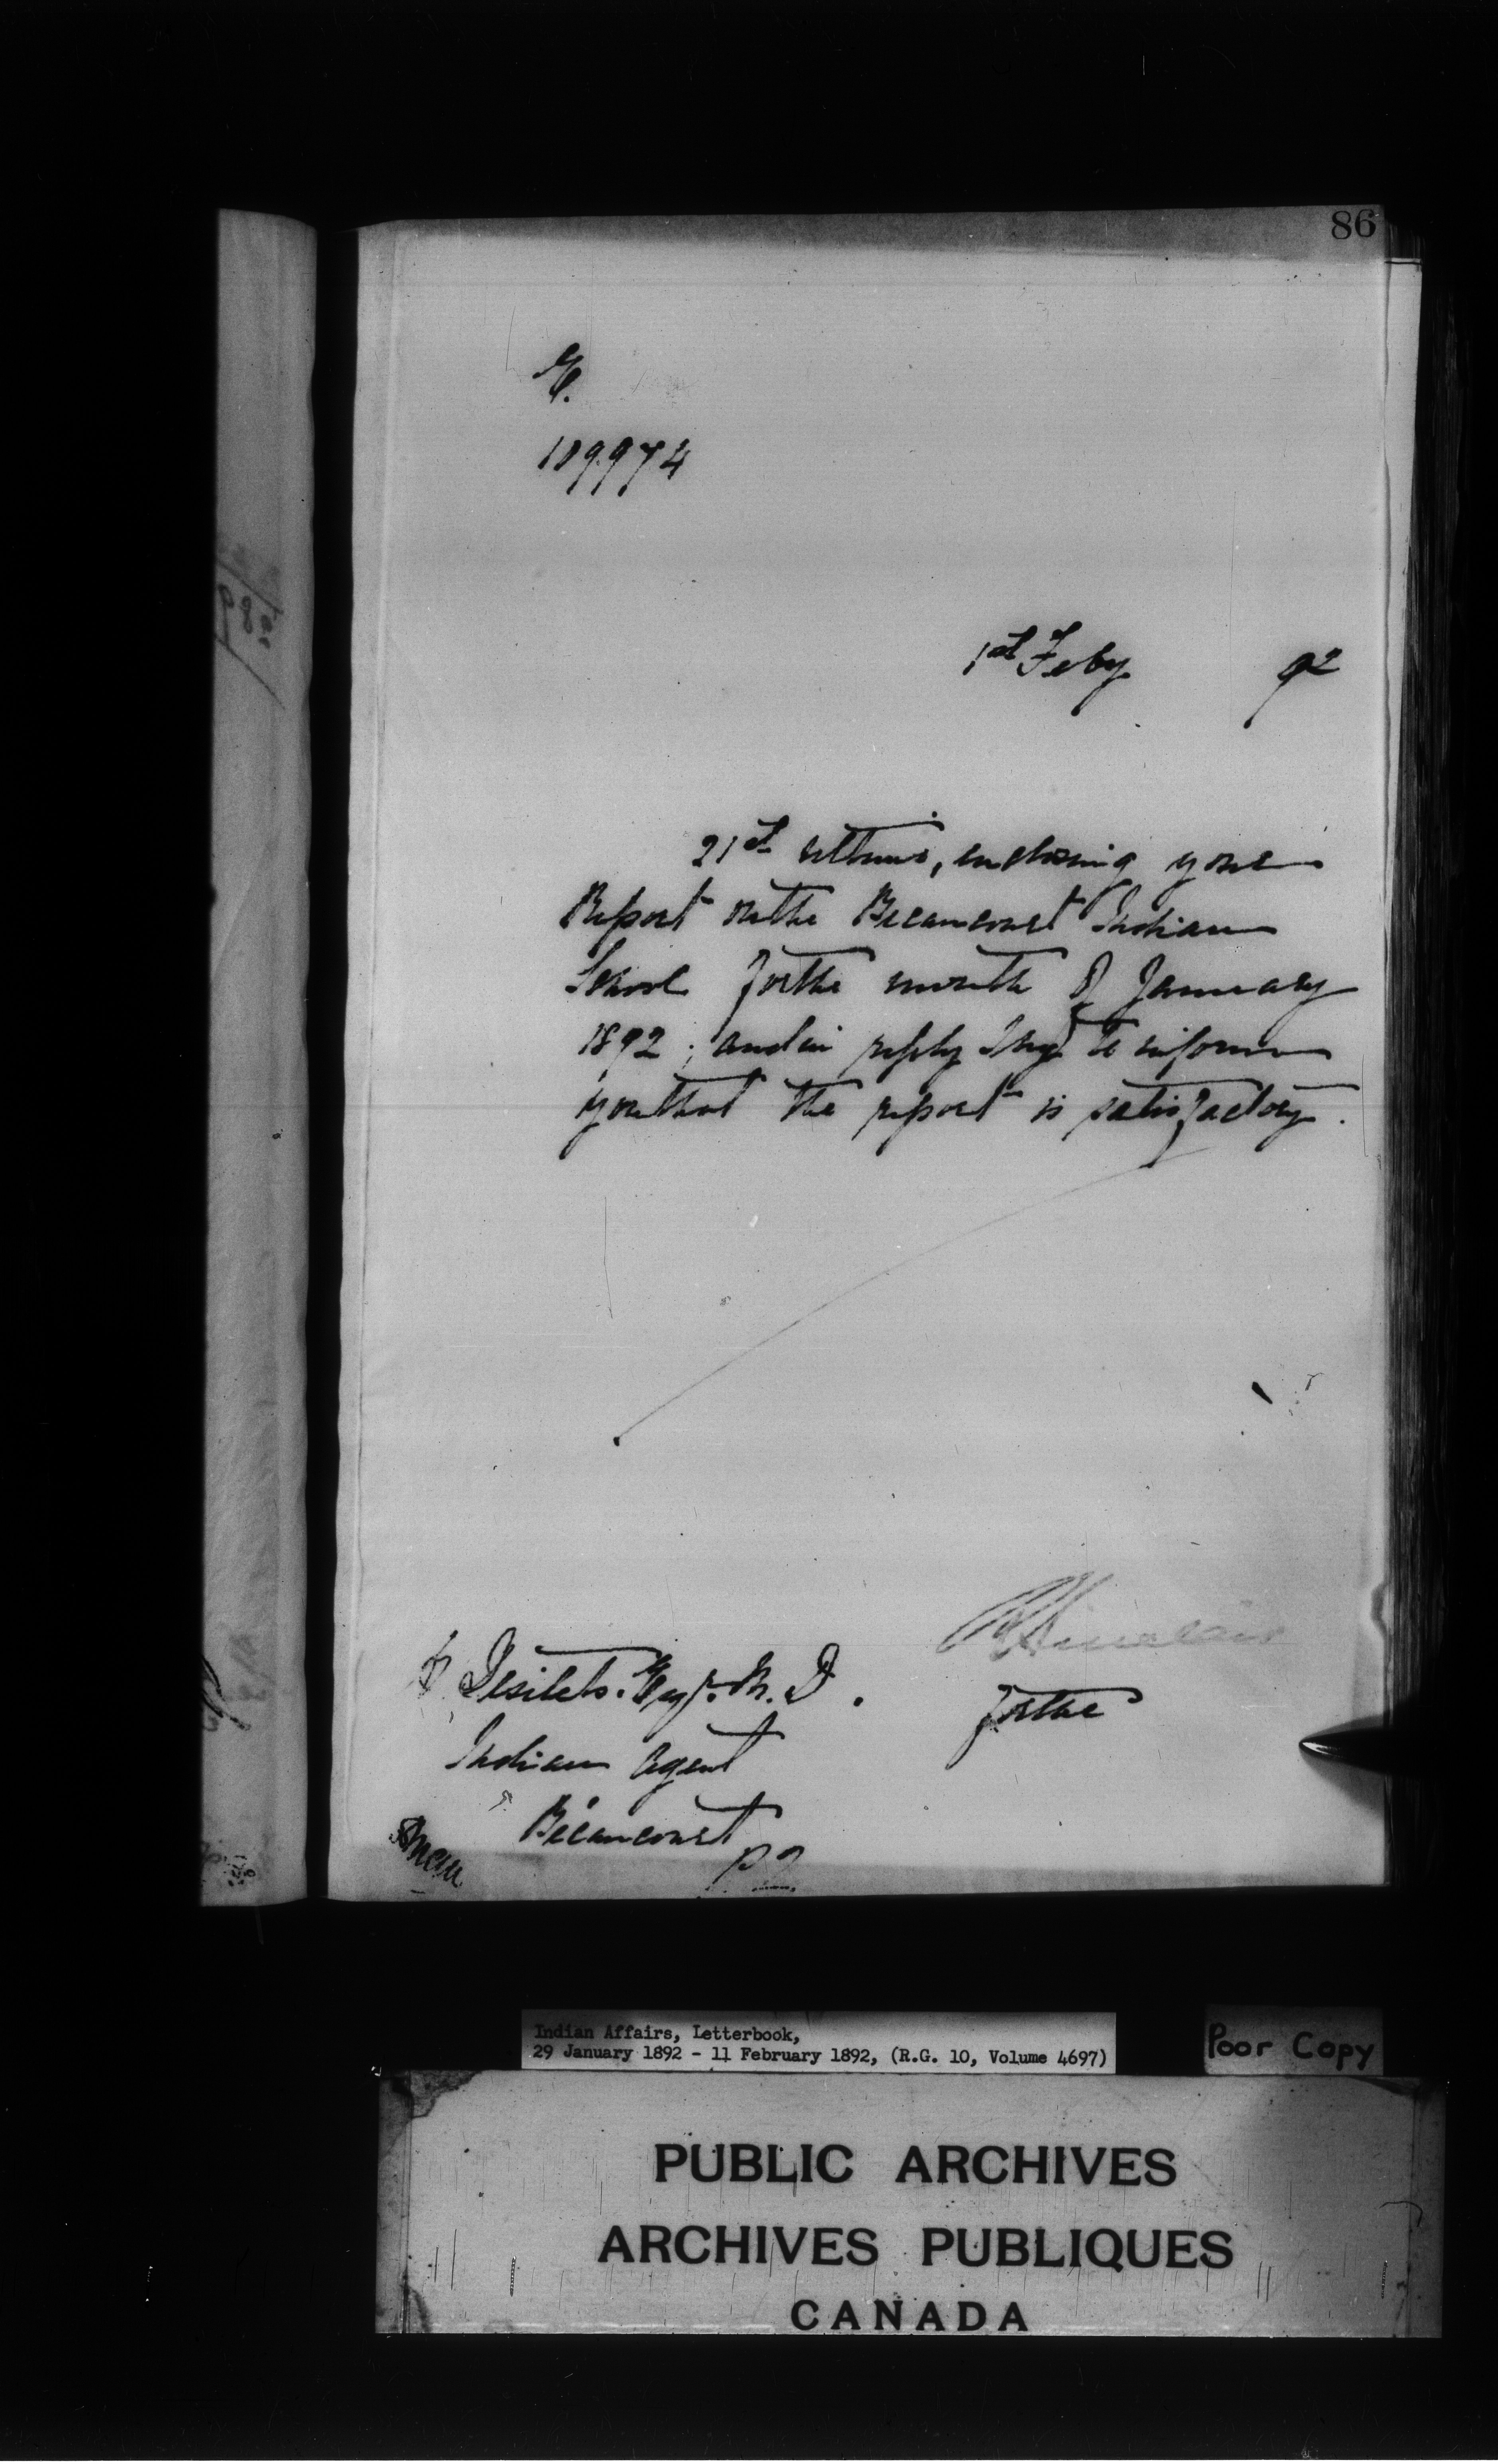 86
E.
109974
1st Feby 92
21st ultimo, enclosing your
Report on the Becancourt Indian
School for the month of January
1892; and in reply I beg to inform
you that the report is satisfactory.
Desilets. Esqr. M. D.
for the
Indian Agent
Bécancourt
P2
Indian Affairs, Letterbook,
29 January 1892 - 11 February 1892, (R.G. 10, Volume 4697)
Poor Copy
PUBLIC ARCHIVES
ARCHIVES PUBLIQUES
CANADA